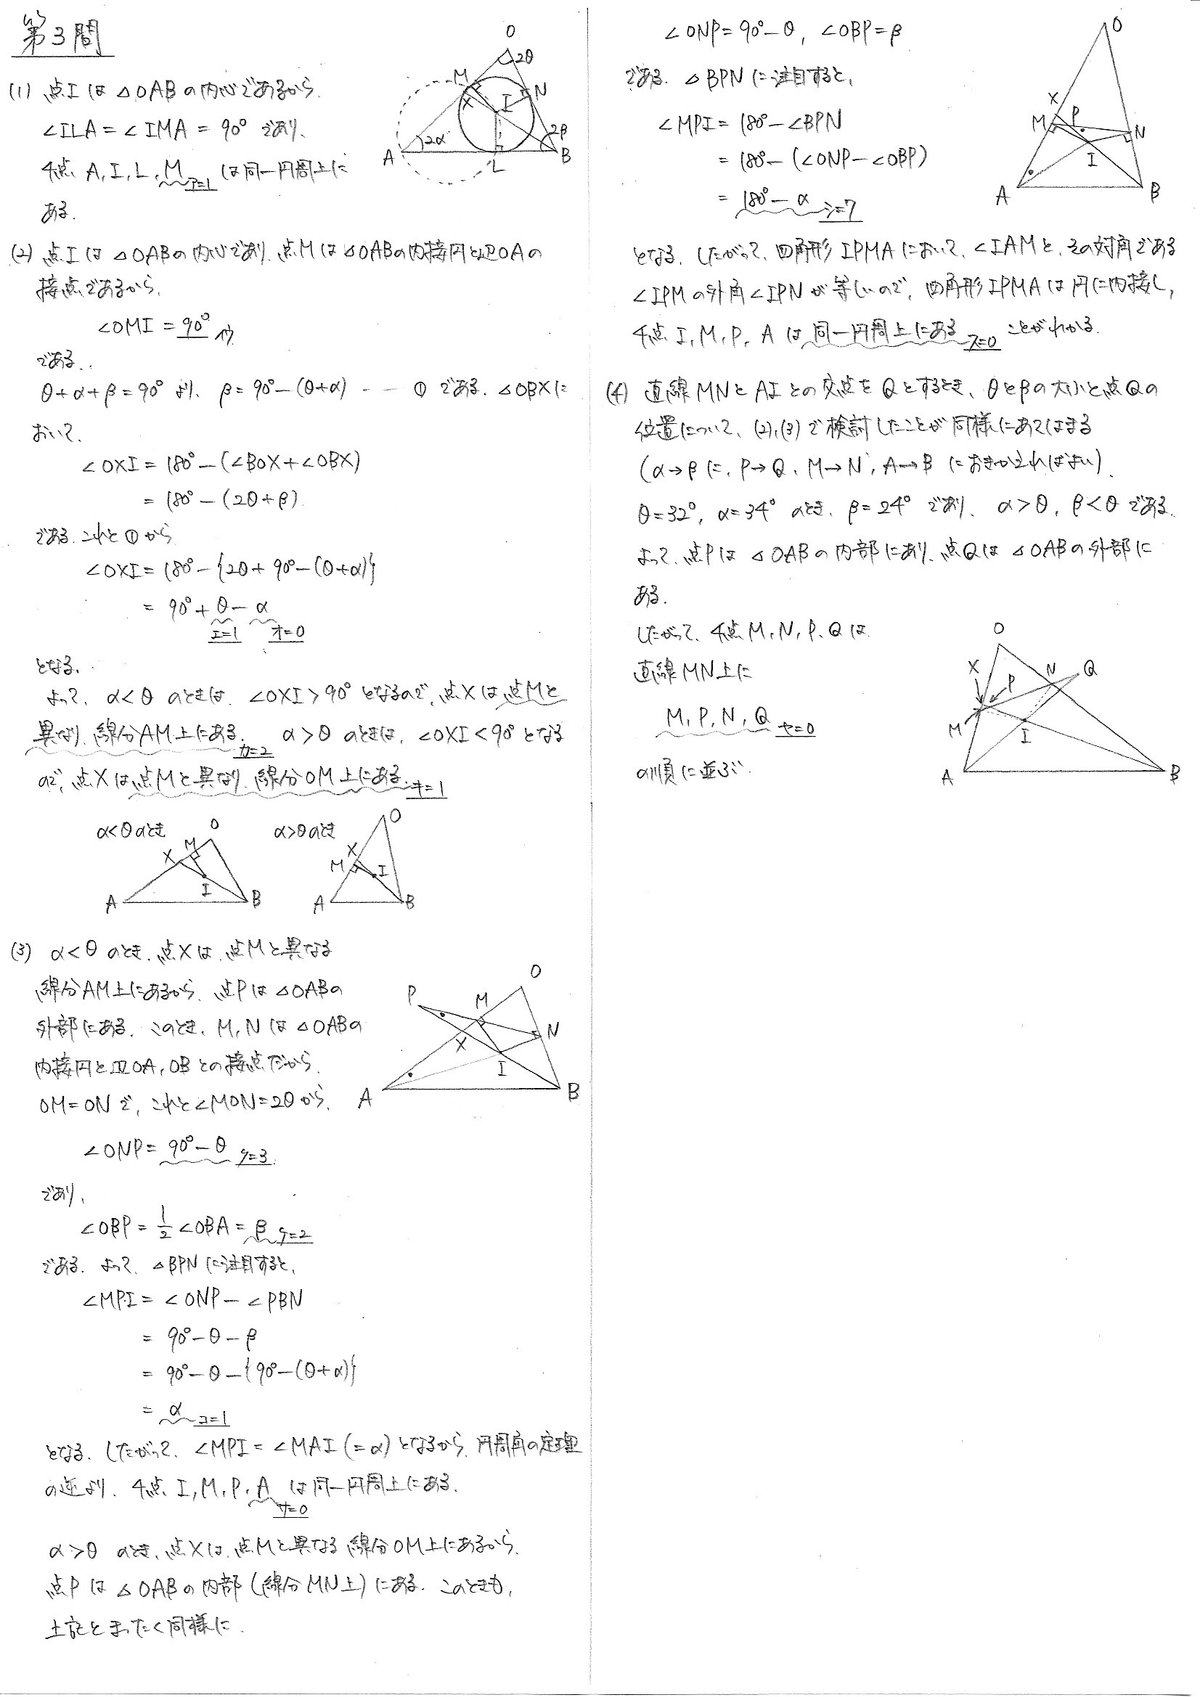 第3問
(1) 点Iは△OABの内心であるから
∠ILA=∠IMA=90°であり、
4点 A, I, L, M ア=1 は同一円周上に
ある.
O
2θ
M
X
I
N
2α
2β
A
L
B
(2) 点Iは△OABの内心であり、点Mは△OABの内接円と辺OAの
接点であるから、
∠OMI=90° イウ
である.
θ+α+β=90°より、β=90°-(θ+α) … ①である. △OBXに
おいて、
∠OXI=180°-(∠BOX+∠OBX)
=180°-(2θ+β)
である.これと①から
∠OXI=180°-{2θ+90°-(θ+α)}
=90°+θ-α
エ=1 オ=0
となる.
よって、α<θのときは、∠OXI>90°となるので、点Xは点Mと
異なり、線分AM上にある. カ=2 α>θのときは、∠OXI<90°となる
ので、点Xは点Mと異なり、線分OM上にある. キ=1
α<θのとき
O
M
X
I
A
B
α>θのとき
O
X
M
I
A
B
(3) α<θのとき、点Xは、点Mと異なる
線分AM上にあるから、点Pは△OABの
外部にある. このとき、M, Nは△OABの
内接円と辺OA, OBとの接点だから、
OM=ONで、これと∠MON=2θから、
O
P
M
N
X
I
A
B
∠ONP=90°-θ ク=3
であり、
∠OBP=1/2∠OBA=β ケ=2
である. よって、△BPNに注目すると、
∠MPI=∠ONP-∠PBN
=90°-θ-β
=90°-θ-{90°-(θ+α)}
=α コ=1
となる. したがって、∠MPI=∠MAI(=α)となるから、円周角の定理
の逆より、4点 I, M, P, A は同一円周上にある.
サ=0
α>θのとき、点Xは、点Mと異なる線分OM上にあるから、
点Pは△OABの内部(線分MN上)にある. このときも、
上記とまったく同様に、
∠ONP=90°-θ, ∠OBP=β
である. △BPNに注目すると、
∠MPI=180°-∠BPN
=180°-(∠ONP-∠OBP)
=180°-α シ=7
O
X
M
P
N
I
A
B
となる. したがって、四角形IPMAにおいて、∠IAMと、その対角である
∠IPMの外角∠IPNが等しいので、四角形IPMAは円に内接し、
4点 I, M, P, A は同一円周上にある ス=0 ことがわかる.
(4) 直線MNとAIとの交点をQとするとき、θとβの大小と点Qの
位置について、(2),(3)で検討したことが同様にあてはまる
(α→βに、P→Q、M→N、A→Bにおきかえればよい).
θ=32°, α=34°のとき、β=24°であり、α>θ, β<θである.
よって、点Pは△OABの内部にあり、点Qは△OABの外部に
ある.
したがって、4点M, N, P, Qは
直線MN上に
M, P, N, Q セ=0
の順に並ぶ.
O
X
P
N
Q
M
I
A
B